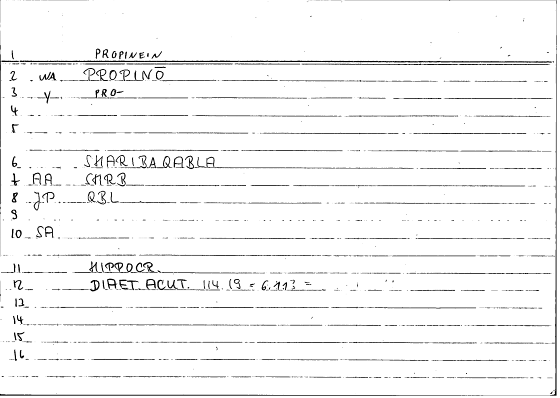 1 PROPINEIN
2 WA PROPINŌ
3 Y PRO-
4
5
6 SHARIBA QABLA
7 AA SHRB
8 JP QBL
9
10 SA
11 HIPPOCR.
12 DIAET. ACUT. 114.19 = 6.113 =
13
14
15
16